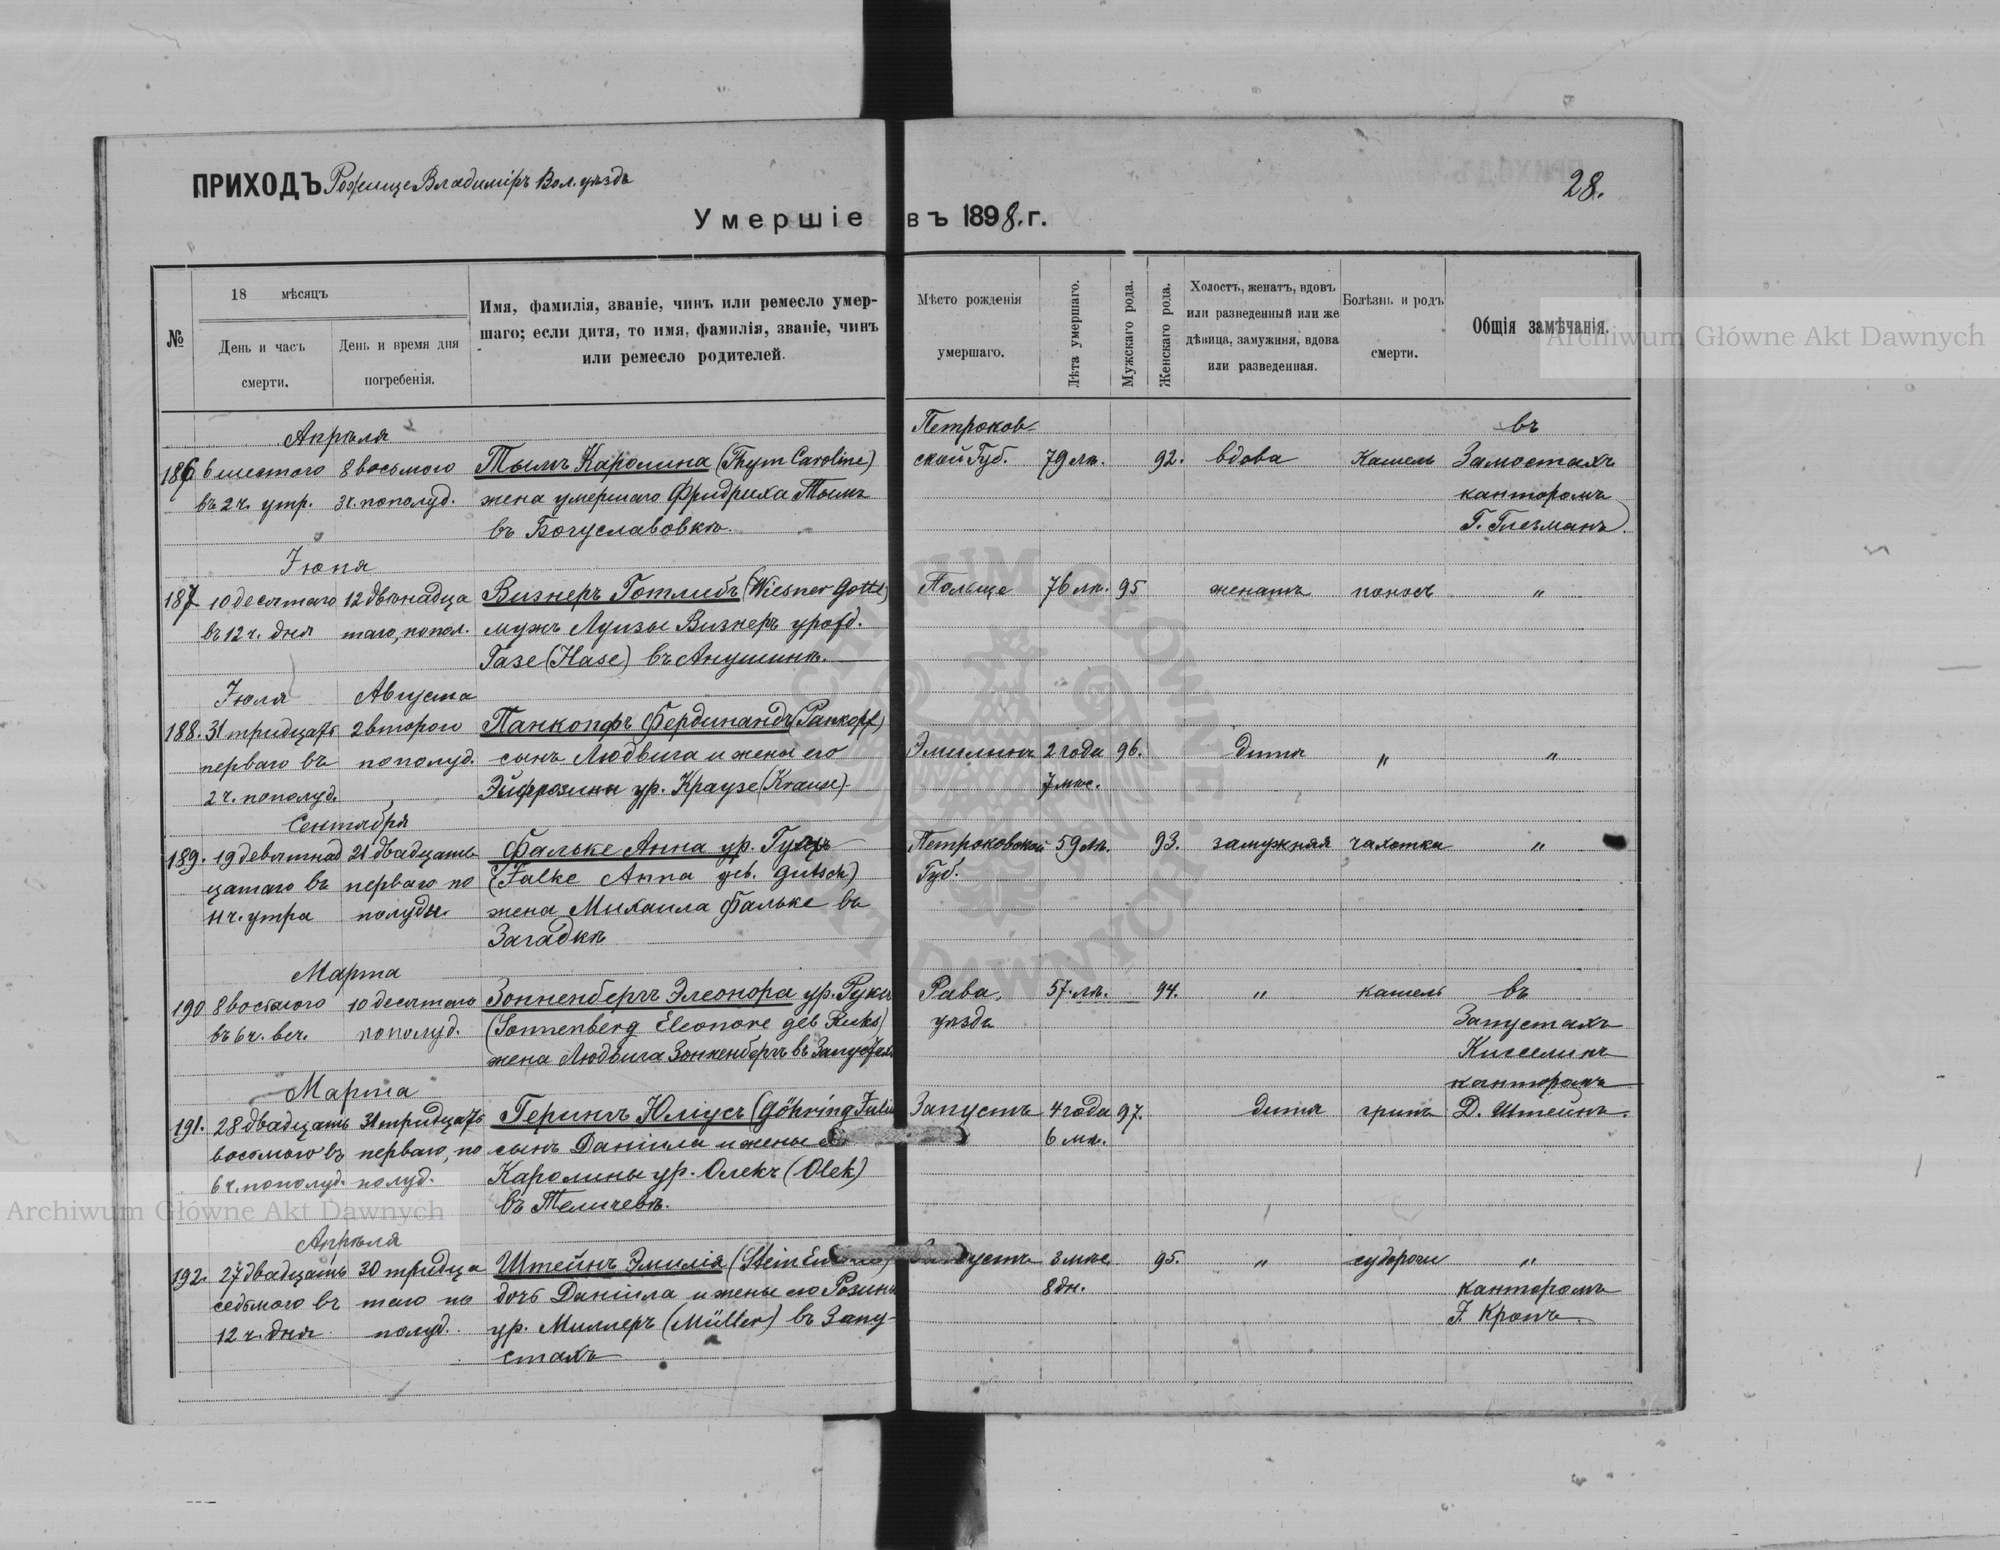 ПРИХОДЪ Рожище Владимiръ Вол. уѣздъ
28.
Умершіе въ 1898. г.
№
18 мѣсяцъ
День и часъ смерти.
День и время дня погребенія.
Имя, фамилія, званіе, чинъ или ремесло умер-
шаго; если дитя, то имя, фамилія, званіе, чинъ
или ремесло родителей.
Мѣсто рожденія умершаго.
Лѣта умершаго.
Мужскаго рода.
Женскаго рода.
Холостъ, женатъ, вдовъ
или разведенный или же
дѣвица, замужняя, вдова
или разведенная.
Болѣзнь и родъ смерти.
Общія замѣчанія.
Archiwum Główne Akt Dawnych
Апрѣля Петроков- въ
186 6 шестого 8 восьмого Тымъ Каролина (Thym Caroline) ской Губ. 79 лѣ. 92. вдова кашель Замостахъ
въ 2 ч. утр. 3 ч. пополуд. жена умершаго Фридриха Тымъ канторомъ
въ Богуславовкѣ. Г. Глезманъ.
Iюня
187 10 десятаго 12 двѣнадца Визнеръ Готлибъ (Wiesner Gottl) Польще 76 лѣ. 95 женатъ поносъ "
въ 12 ч. дня таго, попол. мужъ Луизы Визнеръ урожд.
Газе (Hase) въ Анушинѣ.
Iюля Августа
188. 31 тридцать 2 второго Панкопфъ Фердинандъ (Pankopf)
перваго въ пополуд. сынъ Людвига и жены его Эмилинъ 2 года 96. дитя " "
2 ч. пополуд. Эйфрозины ур. Краузе (Krause). 7 мѣс.
Сентября
189. 19 девятнад 21 двадцать Фальке Анна ур. Гучъ Петроковской 59 лѣ. 93. замужняя чахотка "
цатаго въ перваго по (Falke Anna geb. Gutsch) Губ.
11 ч. утра полудн. жена Михаила Фальке въ
Загадкѣ
Марта
190 8 восьмого 10 десятаго Зонненбергъ Элеонора ур. Рукъ Рава. 57. лѣ. 94. " кашель въ
въ 6 ч. веч. пополуд. (Sonnenberg Eleonore geb Ruks) уѣздъ Запустахъ
жена Людвига Зонненбергъ въ Киселинъ
Марта канторомъ
191. 28 двадцать 31 тридцать Герингъ Юлiусъ (Göhring Запустъ 4 года 97. дитя грипъ Д. Штейнъ.
восьмого въ перваго, по сынъ Данiила и жены 6 мѣ.
6 ч. пополуд. полуд. Каролины ур. Олекъ (Olek)
въ Теличевѣ.
Archiwum Główne Akt Dawnych
Апрѣля
192. 27 двадцать 30 тридца Штейнъ Эмилiя (Stein 3 мѣс. 95. " судороги "
седьмого въ таго по дочь Данiила и жены его Розины 8 дн. канторомъ
12 ч. дня полуд. ур. Миллеръ (Müller) въ Запу- F. Кропъ.
стахъ